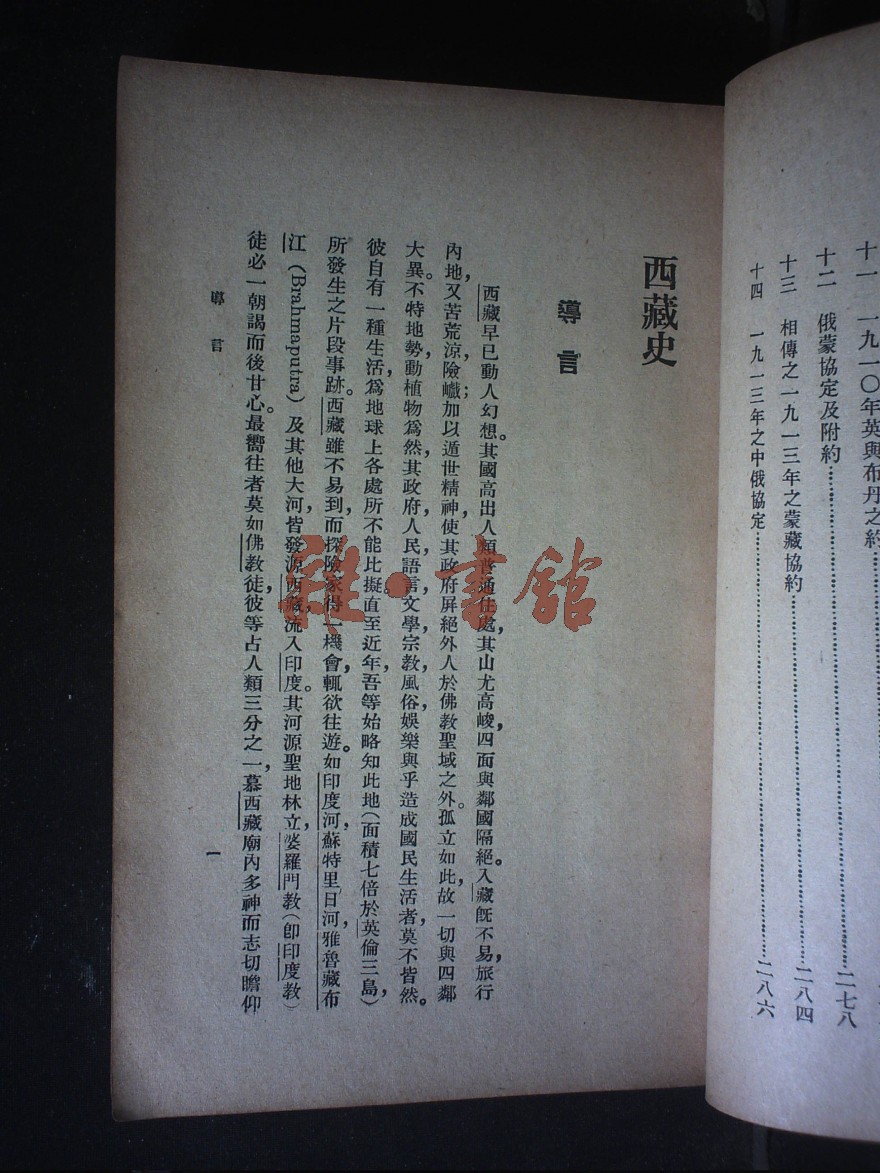 十一　一九一〇年英與布丹之約
十二　俄蒙協定及附約……二七八
十三　相傳之一九一三年之蒙藏協約……二八四
十四　一九一三年之中俄協定……二八六
西藏史
導言
西藏早已動人幻想。其國高出人類普通住處，其山尤高峻，四面與鄰國隔絕。入藏既不易，旅行
內地，又苦荒涼，險巇；加以遁世精神，使其政府屏絕外人於佛教聖域之外。孤立如此，故一切與四鄰
大異。不特地勢，動植物爲然，其政府，人民，語言，文學，宗教，風俗，娛樂，與乎造成國民生活者，莫不皆然。
彼自有一種生活，爲地球上各處所不能比擬。直至近年，吾等始略知此地（面積七倍於英倫三島），
所發生之片段事跡。西藏雖不易到，而探險家得一機會，輒欲往遊。如印度河，蘇特里日河，雅魯藏布
江（Brahmaputra）及其他大河，皆發源西藏，流入印度。其河源聖地林立，婆羅門教（卽印度教）
徒必一朝謁而後甘心。最嚮往者莫如佛教徒，彼等占人類三分之一，慕西藏廟內多神而志切瞻仰
導言
一
雜·書館